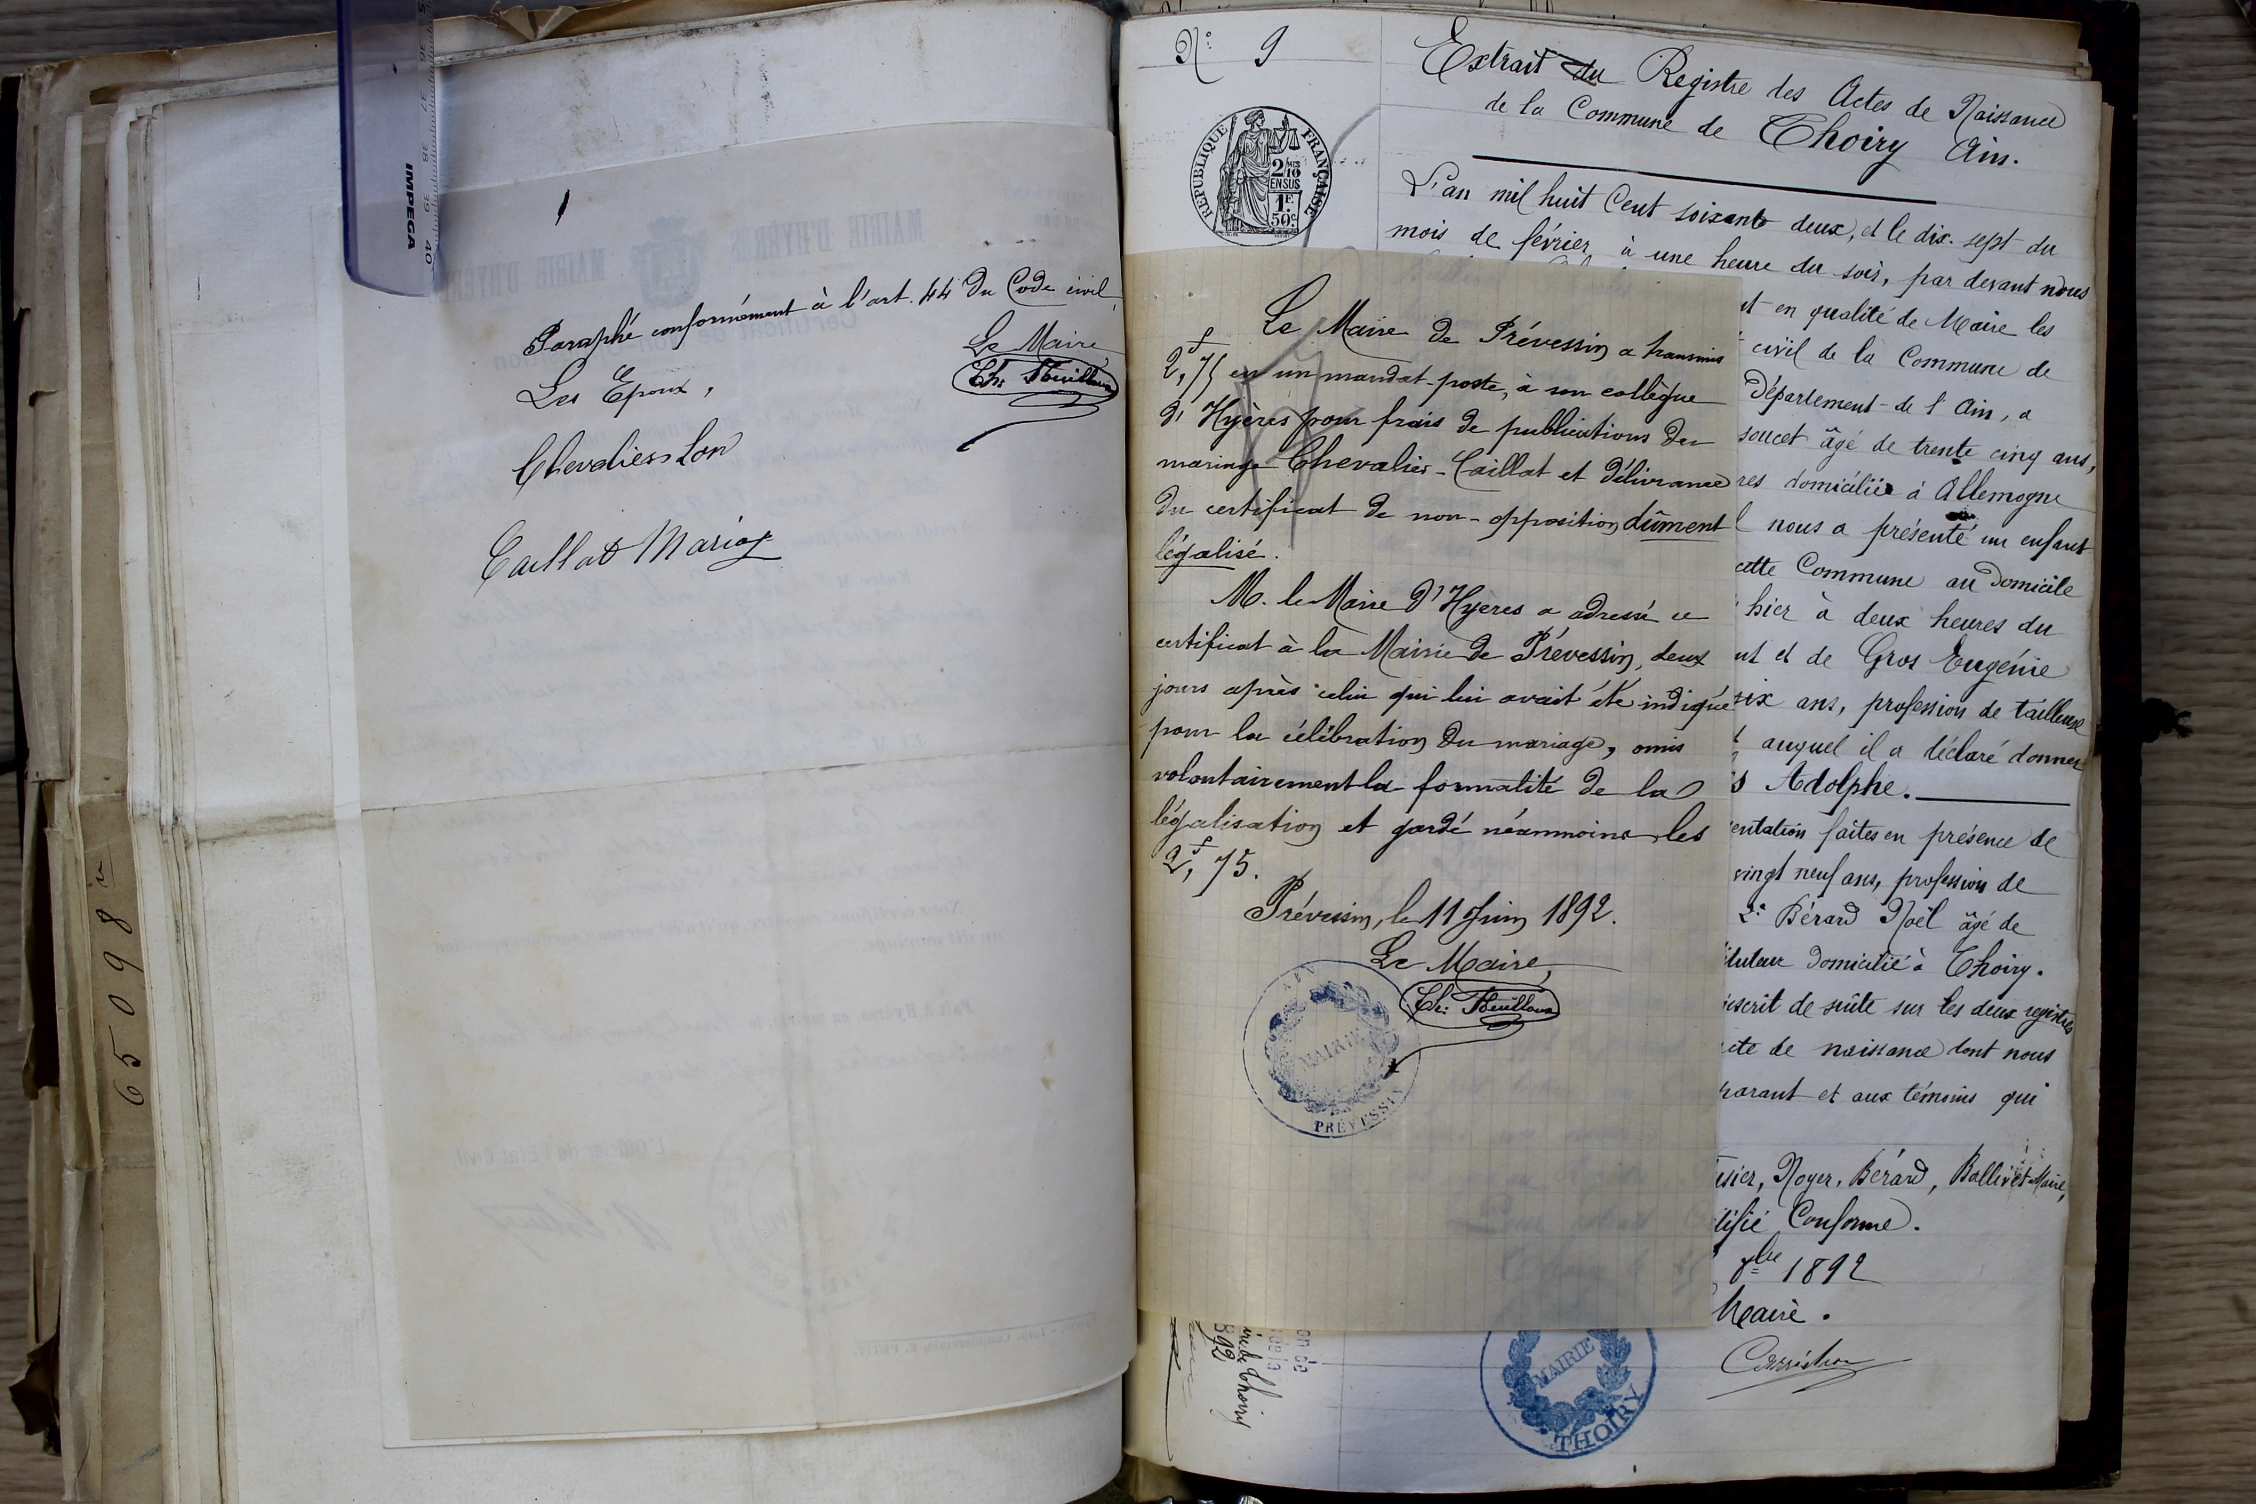 65098
IMPEGA
36 37 38 39 40
Paraphé conformément à l'art. 44 du Code civil,
Le Maire,
Les Epoux,
Chevalier Lon
Caillat Maria
N° 9
Extrait du Registre des Actes de Naissance
de la Commune de Thoiry Ain.
RÉPUBLIQUE FRANÇAISE
2/10
EN SUS
1F
50c.
L'an mil huit cent soixante deux, et le dix-sept du
mois de février à une heure du soir, par devant nous
en qualité de Maire les
civil de la Commune de
Département de l'Ain, a
soucet âgé de trente cinq ans,
domicilié à Allemogne
nous a présenté un enfant
cette Commune au domicile
hier à deux heures du
et de Gros Eugénie
six ans, profession de tailleuse
auquel il a déclaré donner
Adolphe.
entation faites en présence de
vingt neuf ans, profession de
2° Bérard Noël âgé de
domicilié à Thoiry.
inscrit de suite sur les deux registres
acte de naissance dont nous
parant et aux témoins qui
Noyer, Bérard, Ballivet Maire,
tifié Conforme.
7bre 1892
Maire.
Le Maire de Prévessin a transmis
2f,75 en un mandat-poste, à son collègue
d'Hyères pour frais de publications du
mariage Chevalier-Caillat et délivrance
du certificat de non-opposition dûment
légalisé.
M. le Maire d'Hyères a adressé ce
certificat à la Mairie de Prévessin, deux
jours après celui qui lui avait été indiqué
pour la célébration du mariage, omis
volontairement la formalité de la
légalisation et gardé néanmoins les
2f,75.
Prévessin, le 11 Juin 1892.
Le Maire,
AIN
MAIRIE
PRÉVESSIN
MAIRIE
THOIRY
de Thoiry
892